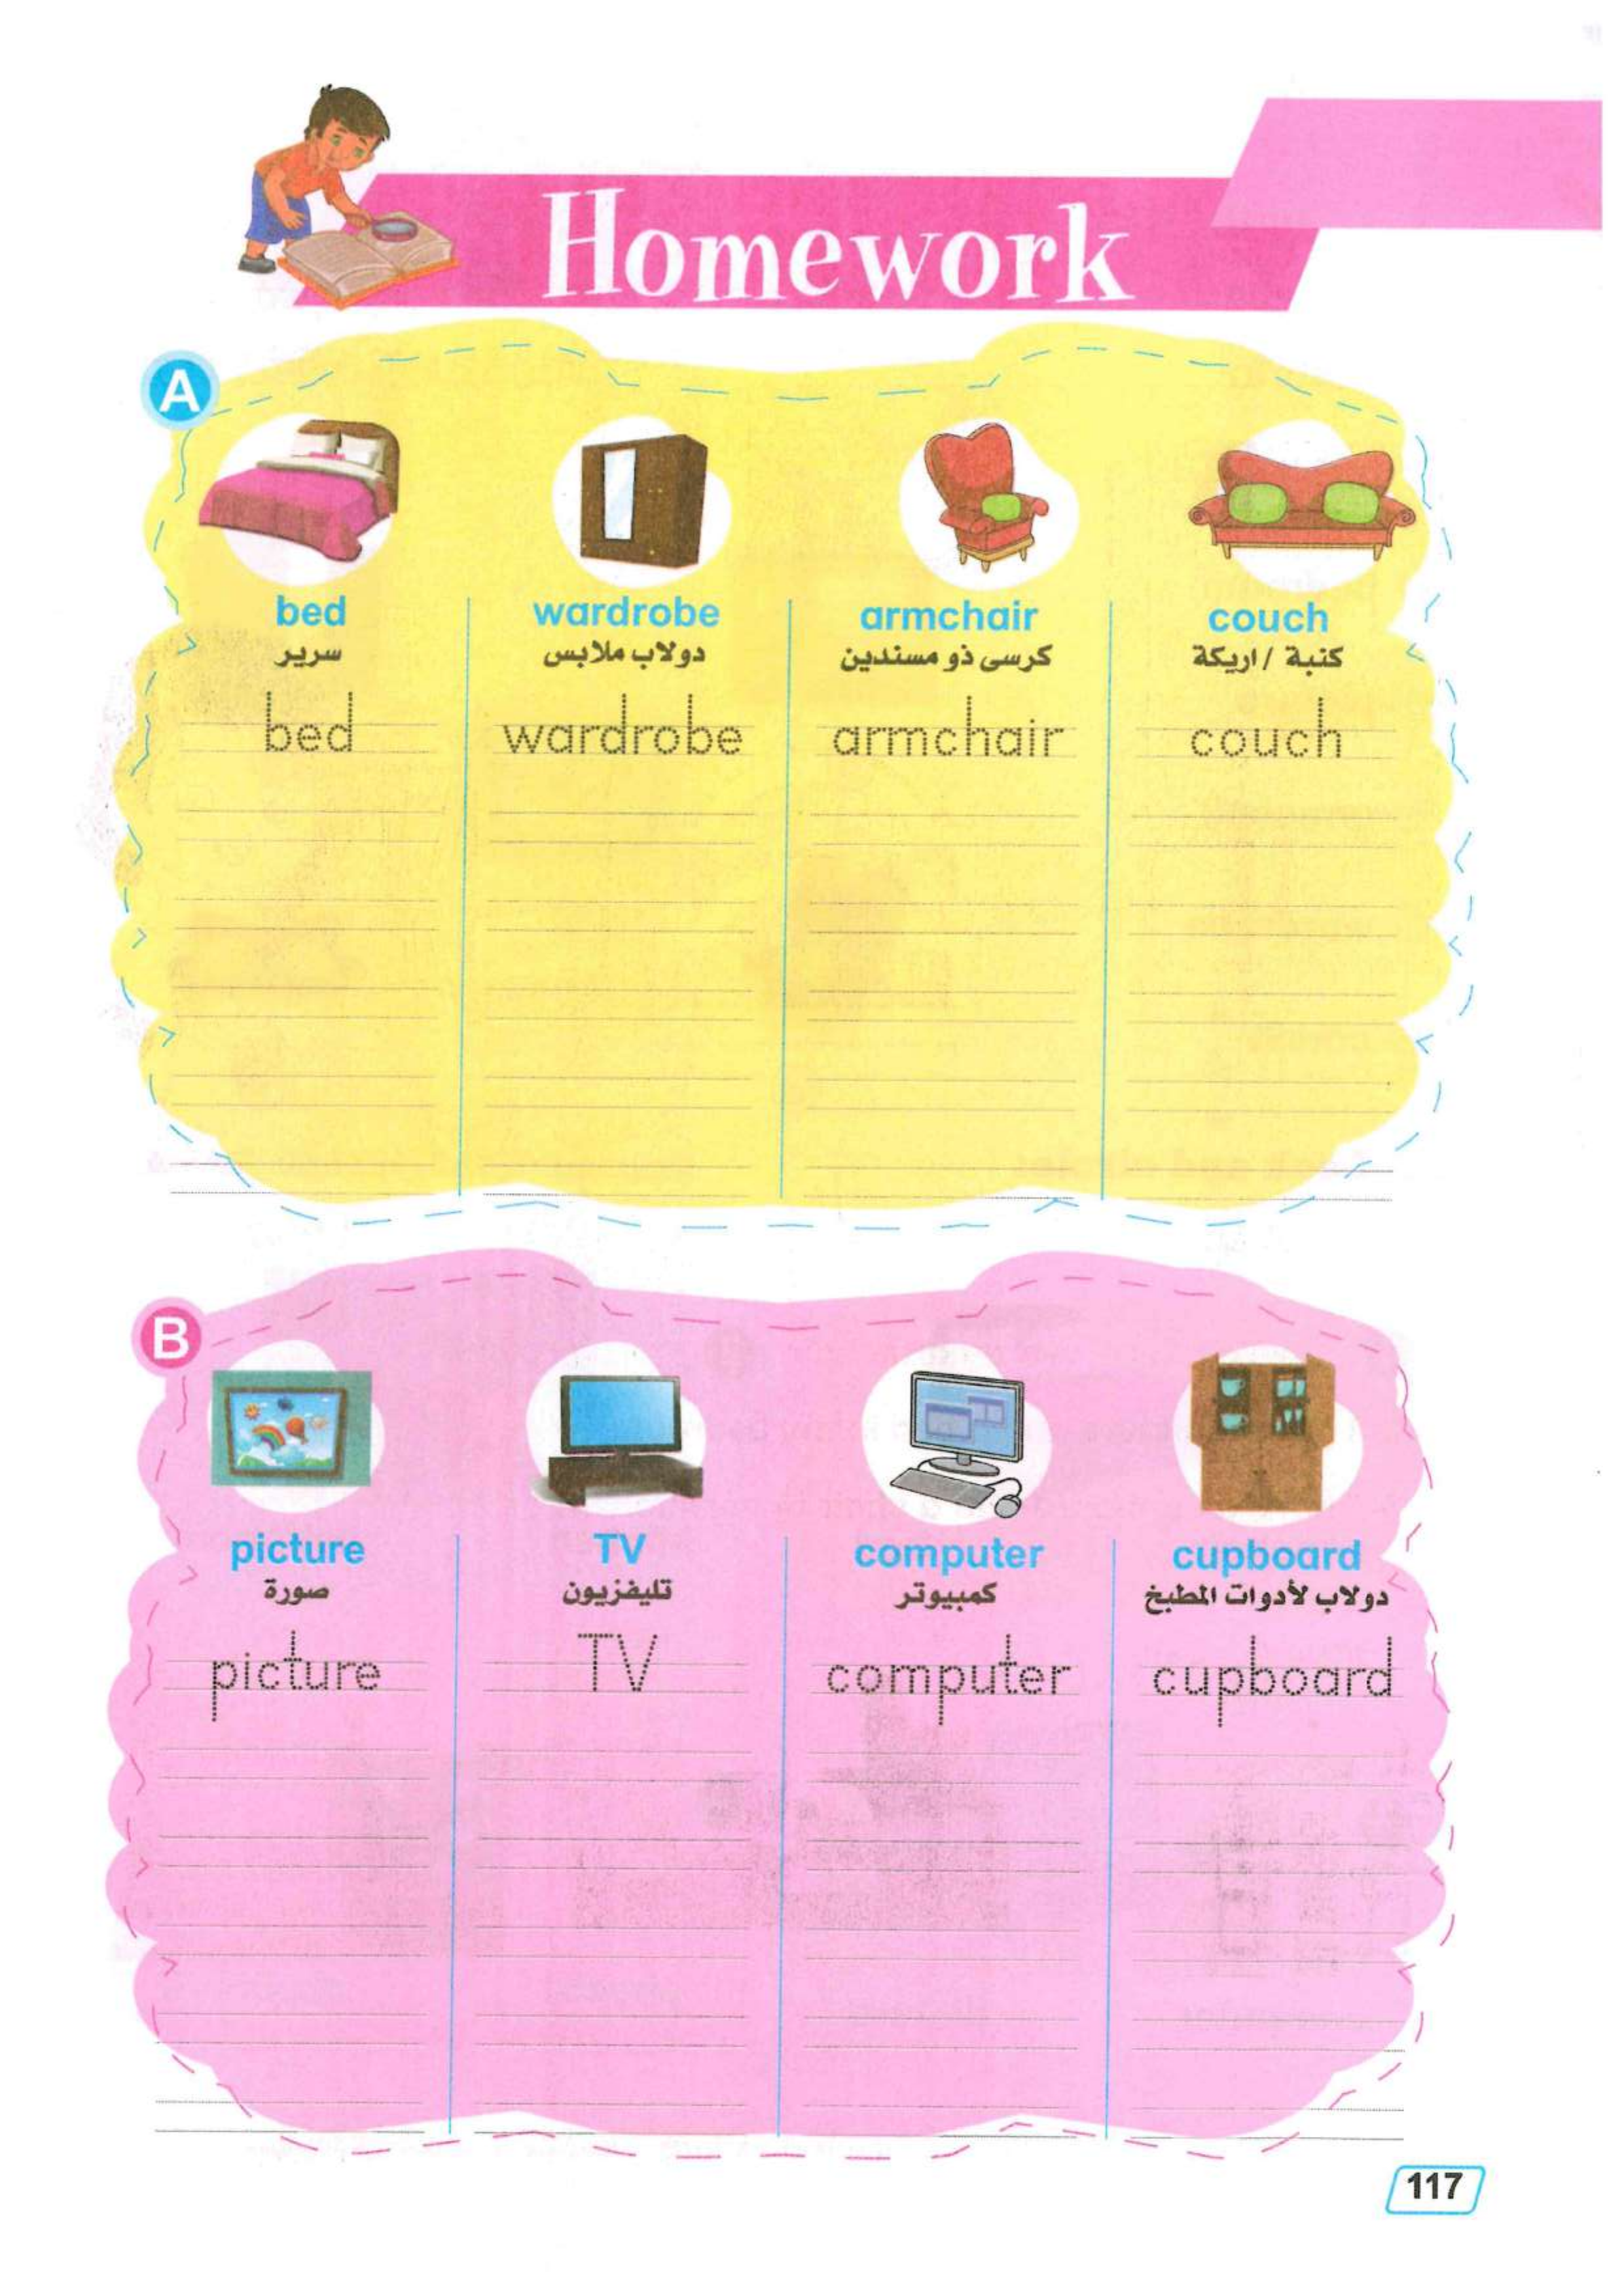 Homework
A
bed
wardrobe
armchair
couch
سرير
دولاب ملابس
كرسى ذو مسندين
كنبة / اريكة
bed
wardrobe
armchair
couch
B
picture
TV
computer
cupboard
صورة
تليفزيون
كمبيوتر
دولاب لأدوات المطبخ
picture
TV
computer
cupboard
117